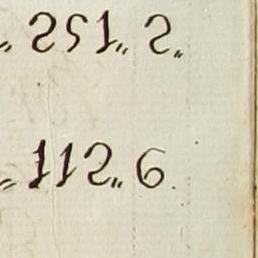 „ 251„ 2„
„ 112„ 6.